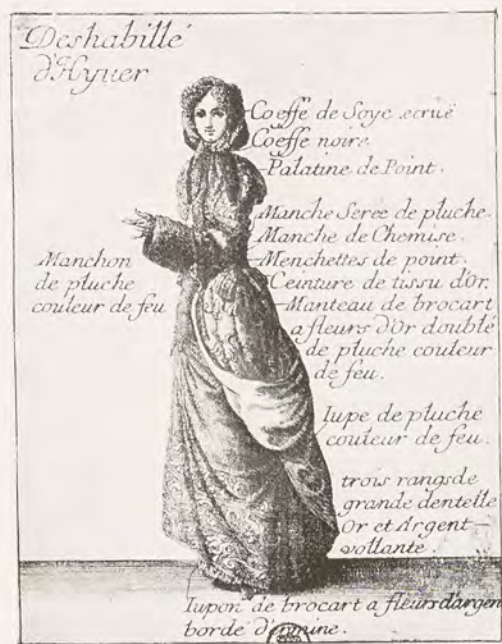 Deshabillé
d'Hyuer
Coeffe de Soye ecrüe
Coëffe noire.
Palatine de Point.
Manche Serée de pluche.
Manche de Chemise.
Menchettes de point.
Ceinture de tissu d'Or.
Manteau de brocart
a fleurs d'Or doublé
de pluche couleur
de feu.
Manchon
de pluche
couleur de feu
Iupe de pluche
couleur de feu.
trois rangs de
grande dentelle
Or et Argent
vollante.
Iupon de brocart a fleurs d'argen
borde d'ermine.